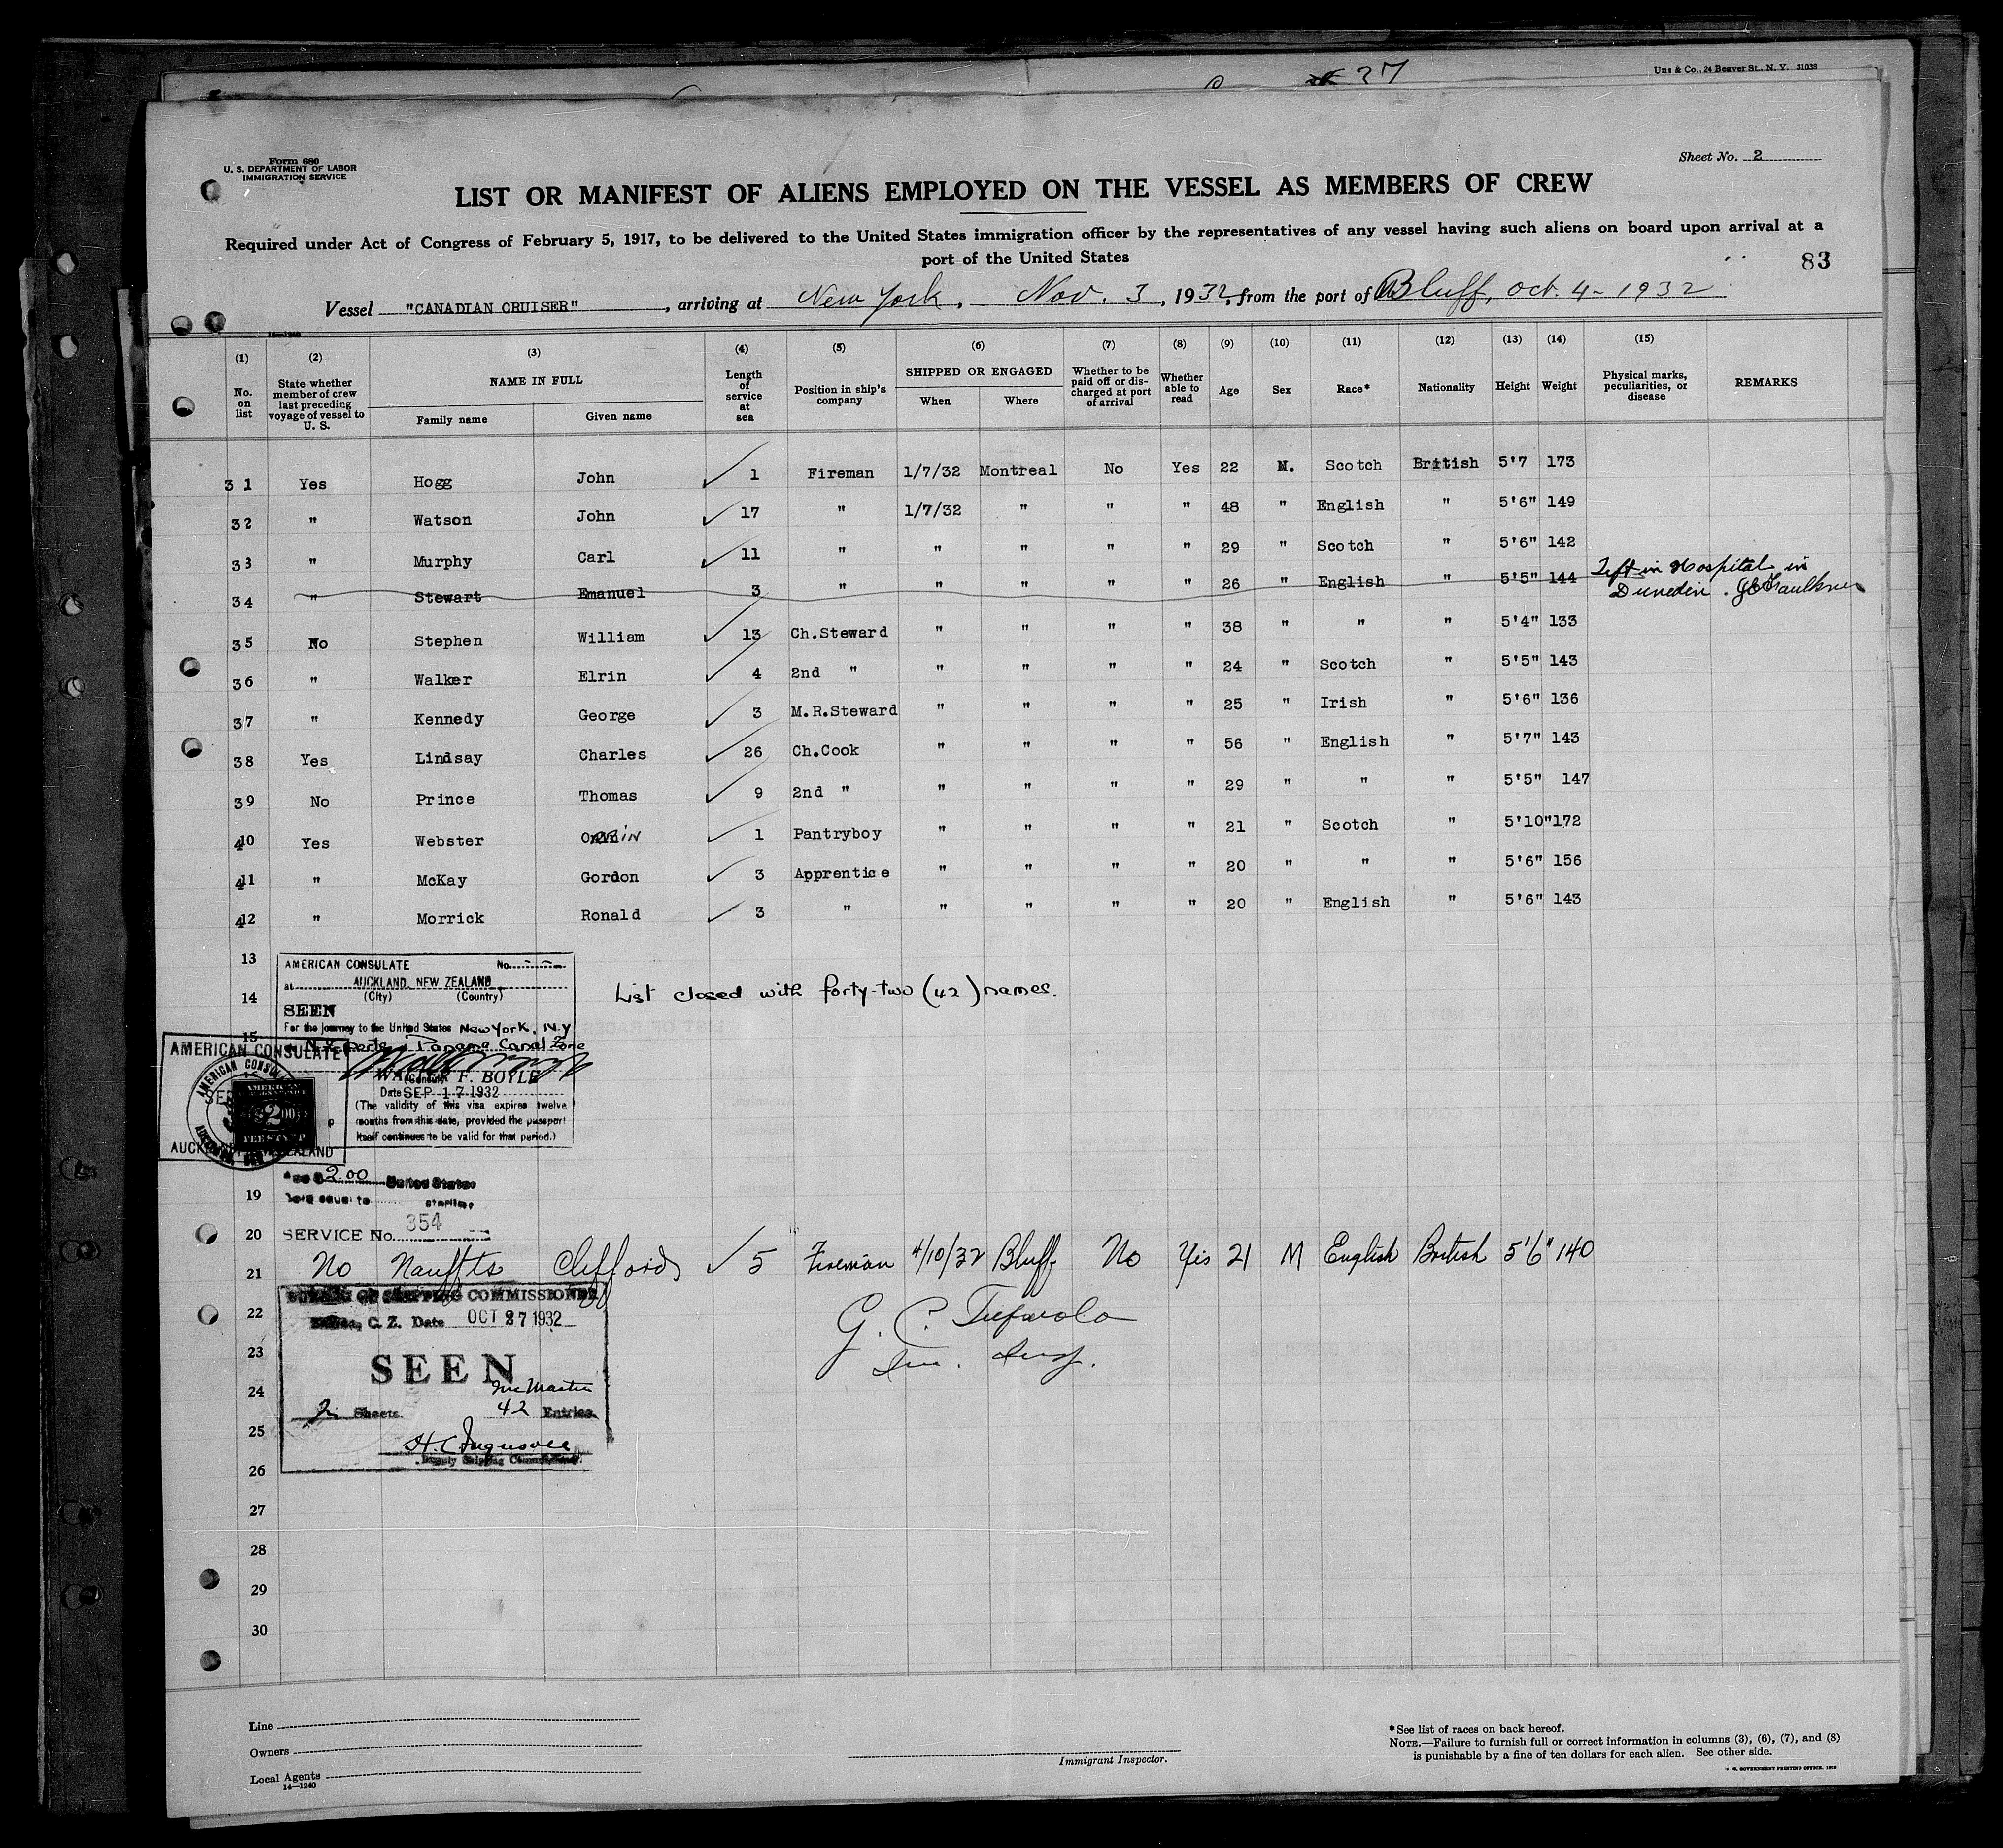 27
Uns & Co., 24 Beaver St., N. Y. 31038
Form 680
U. S. DEPARTMENT OF LABOR
IMMIGRATION SERVICE
Sheet No. 2
LIST OR MANIFEST OF ALIENS EMPLOYED ON THE VESSEL AS MEMBERS OF CREW
Required under Act of Congress of February 5, 1917, to be delivered to the United States immigration officer by the representatives of any vessel having such aliens on board upon arrival at a
port of the United States
83
Vessel "CANADIAN CRUISER", arriving at New York, Nov. 3, 1932, from the port of Bluff, Oct. 4 - 1932
14-1240
(1) (2) (3) (4) (5) (6) (7) (8) (9) (10) (11) (12) (13) (14) (15)
No. on list State whether member of crew last preceding voyage of vessel to U. S. NAME IN FULL Family name Given name Length of service at sea Position in ship's company SHIPPED OR ENGAGED When Where Whether to be paid off or discharged at port of arrival Whether able to read Age Sex Race* Nationality Height Weight Physical marks, peculiarities, or disease REMARKS
31 Yes Hogg John ✓ 1 Fireman 1/7/32 Montreal No Yes 22 M. Scotch British 5'7 173
32 " Watson John ✓ 17 " 1/7/32 " " " 48 " English " 5'6" 149
33 " Murphy Carl ✓ 11 " " " " " 29 " Scotch " 5'6" 142
34 " Stewart Emanuel 3 " " " " " 26 " English " 5'5" 144 Left in Hospital in
Dunedin. Faulkner
35 No Stephen William ✓ 13 Ch.Steward " " " " 38 " " " 5'4" 133
36 " Walker Elrin ✓ 4 2nd " " " " " 24 " Scotch " 5'5" 143
37 " Kennedy George ✓ 3 M.R.Steward " " " " 25 " Irish " 5'6" 136
38 Yes Lindsay Charles ✓ 26 Ch.Cook " " " " 56 " English " 5'7" 143
39 No Prince Thomas ✓ 9 2nd " " " " " 29 " " " 5'5" 147
40 Yes Webster ✓ 1 Pantryboy " " " " 21 " Scotch " 5'10" 172
41 " McKay Gordon ✓ 3 Apprentice " " " " 20 " " " 5'6" 156
42 " Morrick Ronald ✓ 3 " " " " " 20 " English " 5'6" 143
13
AMERICAN CONSULATE No.
at AUCKLAND, NEW ZEALAND
(City) (Country)
14 List closed with forty-two (42) names.
SEEN
For the journey to the United States New York, N.Y
15
Panama Canal Zone
AMERICAN CONSULATE
WALTER F. BOYLE
(Consul)
Date SEP 17 1932
(The validity of this visa expires twelve
months from this date, provided the passport
itself continues to be valid for that period.)
AMERICAN
$2.00
FEE STAMP
AUCKLAND, NEW ZEALAND
2.00 United States
19
equal to sterling
20 SERVICE No. 354
21 No Nauffts Clifford ✓ 5 Fireman 4/10/32 Bluff No Yes 21 M English British 5'6" 140
SHIPPING COMMISSIONER
22 C. Z. Date OCT 27 1932
G. C.
23 SEEN
Imm. Insp.
24 Inc Master
2 Sheets 42 Entries
25
H. C.
Deputy Shipping Commissioner
26
27
28
29
30
Line
Owners
Local Agents
14-1240
Immigrant Inspector.
*See list of races on back hereof.
NOTE.—Failure to furnish full or correct information in columns (3), (6), (7), and (8)
is punishable by a fine of ten dollars for each alien. See other side.
GOVERNMENT PRINTING OFFICE